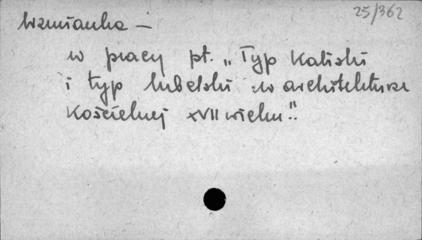 25/362
Wzmianka –
w pracy pt. „Typ Kaliski
i typ lubelski w architekturze
Kościelnej XVII wieku".